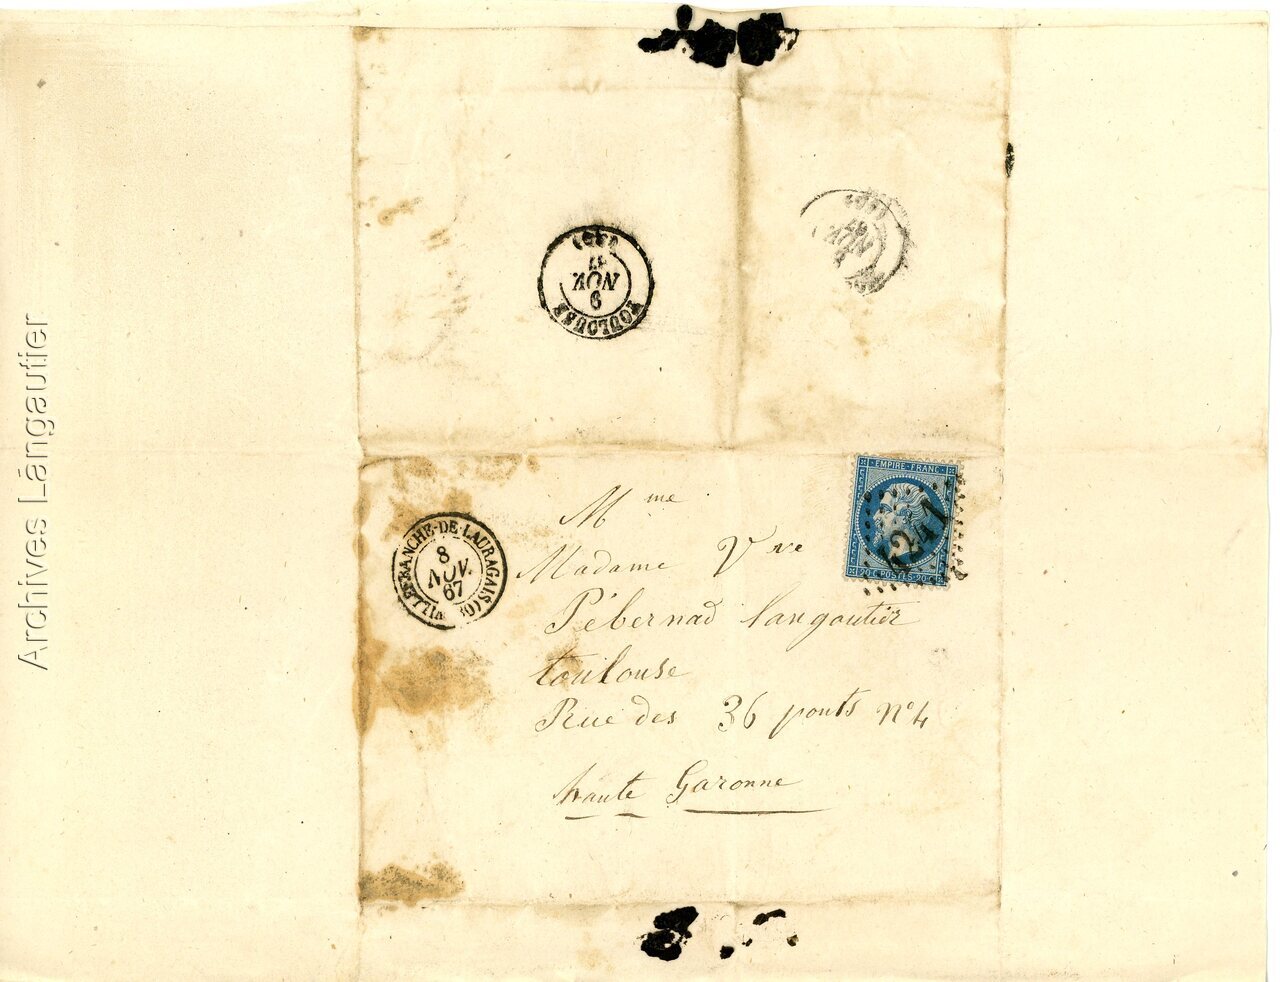 Archives Langautier
TOULOUSE
9
NOV.
67
(30)
NOV
67
EMPIRE·FRANC
4247
20 C POSTES 20 C
VILLEFRANCHE-DE-LAURAGAIS (30)
8
NOV.
67
Mme
Madame Vve
Pébernad Langautier
toulouse
Rue des 36 ponts N° 4
haute Garonne